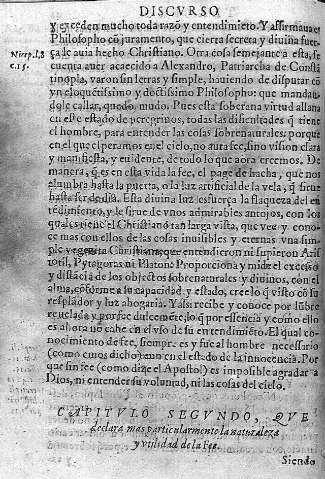 DISCVRSO
y exceden mucho toda razõ y entendimiẽto. Y affirmaua el
Philosopho cõ juramento, que cierta secreta y diuina fuer-
Nicep. l. 8
ça le auia hecho Christiano. Otra cosa semejante a esta, se
c. 15.
cuenta auer acaecido a Alexandro, Patriarcha de Constã
tinopla, varon sin letras y simple, hauiendo de disputar cõ
vn eloquẽtissimo y doctissimo Philosopho: que mandau
dole callar, quedo mudo. Pues esta soberana virtud allana
en este estado de peregrinos, todas las dificultades q̃ tiene
el hombre, para entender las cosas sobrenaturales: porque
en el que esperamos en el cielo, no aura fee, sino vision clara
y manifiesta, y euidente, de todo lo que aora creemos. De
manera, q̃ es en esta vida la fee, el page de hacha, que nos
alumbra hasta la puerta, o la luz artificial de la vela, q̃ sirue
hasta ser de dia. Esta diuina luz esfuerça la flaqueza del en
tẽdimiento, y le sirue de vnos admirables antojos, con los
quales tiene el Christiano tan larga vista, que vee y cono-
ce mas con ellos de las cosas inuisibles y eternas vna sim-
ple vegezita Christiana, que entendieron ni supieron Aris
totil, Pytagoras ni Platon. Proporciona y mide el excesso
y distãcia de los objectos sobrenaturales y diuinos, con el
alma, cõforme a su capacidad y estado, cree lo q̃ visto cõ su
resplãdor y luz ahogaria. Y assi recibe y conoce por lũbre
reuelada y por fee dulcemẽte, lo q̃ por essencia y como ello
es ahora no cabe en el vso de su entendimiẽto. El qual co-
nocimiento de fee, siempre es y fue al hombre necessario
(como emos dicho) aun en el estado de la innocencia. Por
que sin fee (como dize el Apostol) es impossible agradar a
Dios, ni entender su voluntad, ni las cosas del cielo.
CAPITVLO SEGVNDO, QVE
declara mas particularmente la naturaleza
y vtilidad de la Fee.
Siendo